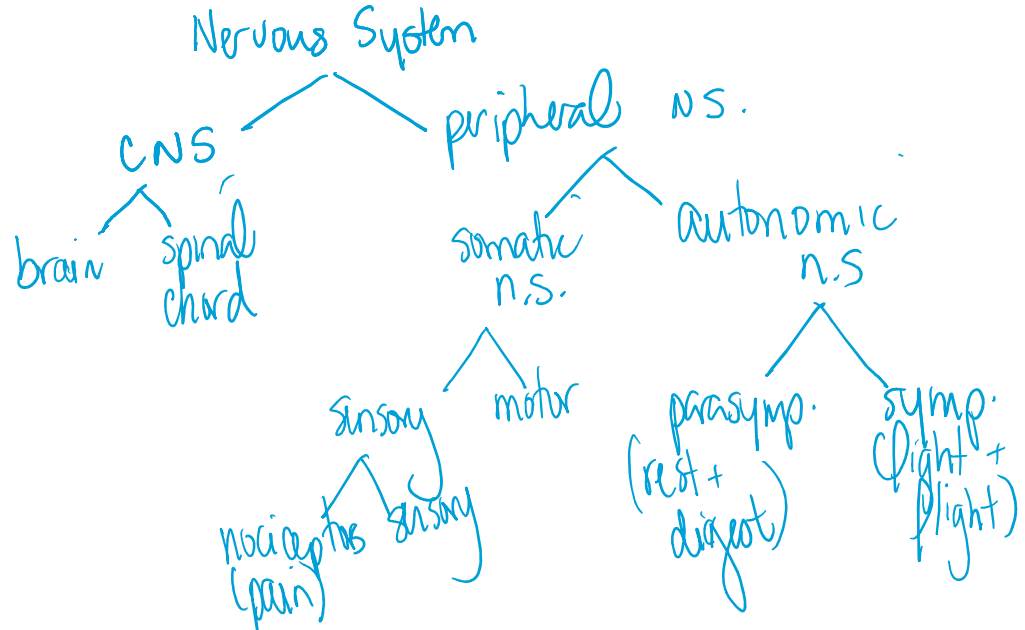 Nervous System
CNS
peripheral NS.
brain
spinal
chord
somatic
n.s.
autonomic
n.s
sensory
motor
parasymp.
(rest +
digest)
symp.
(fight +
flight)
nociceptors
(pain)
sensory